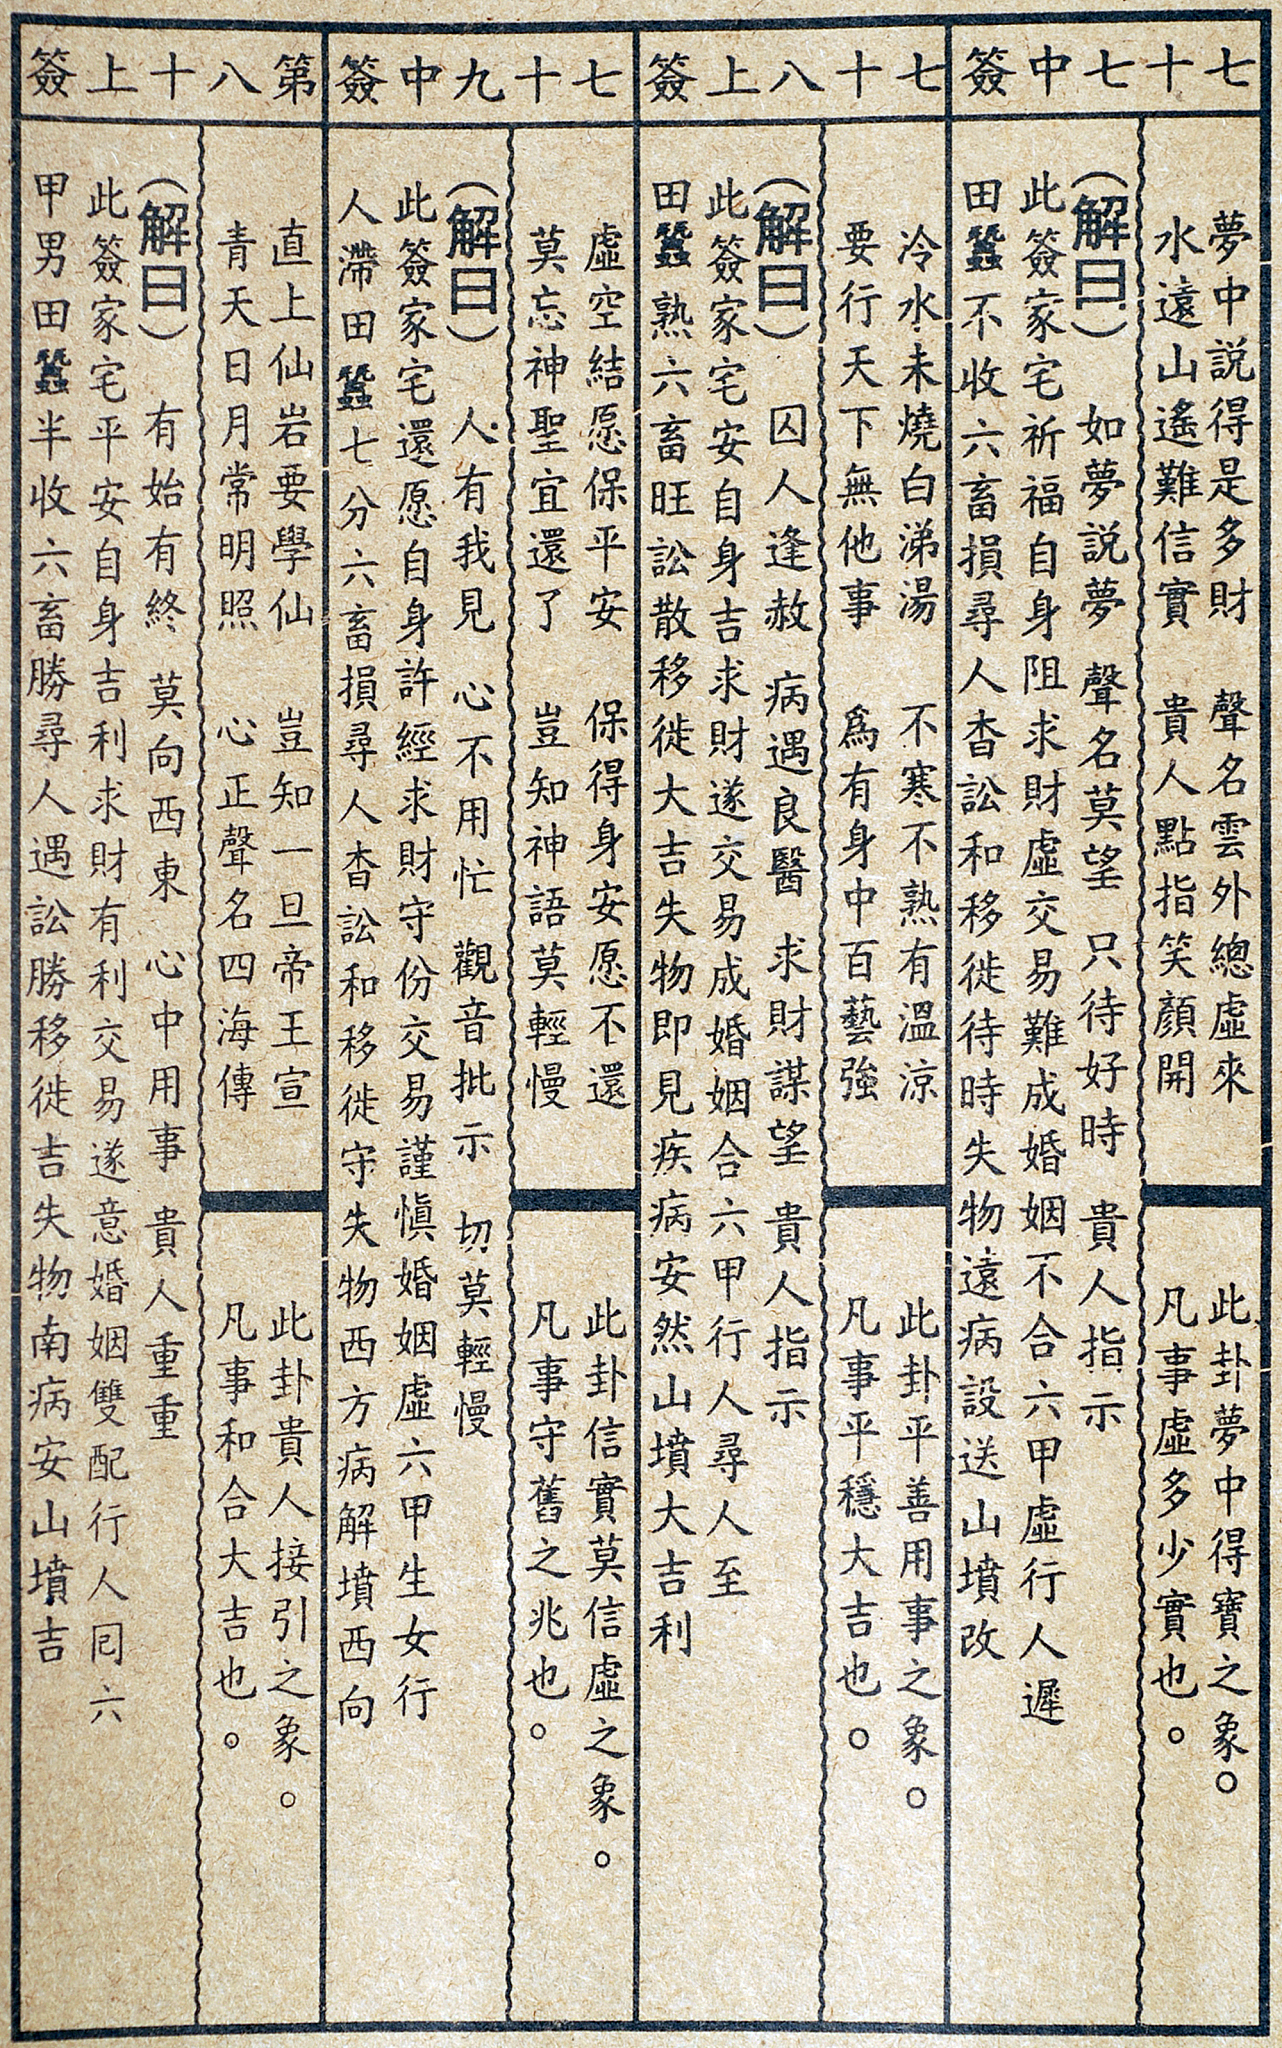 七十七中簽
夢中説得是多財　聲名雲外總虛來
水遠山遙難信實　貴人點指笑顏開
此卦夢中得寶之象。
凡事虛多少實也。
（解曰）　如夢説夢　聲名莫望　只待好時　貴人指示
此簽家宅祈福自身阻求財虛交易難成婚姻不合六甲虛行人遲
田蠶不收六畜損尋人杳訟和移徙待時失物遠病設送山墳改
七十八上簽
冷水未燒白沸湯　不寒不熟有溫涼
要行天下無他事　爲有身中百藝強
此卦平善用事之象。
凡事平穩大吉也。
（解曰）　囚人逢赦　病遇良醫　求財謀望　貴人指示
此簽家宅安自身吉求財遂交易成婚姻合六甲行人尋人至
田蠶熟六畜旺訟散移徙大吉失物即見疾病安然山墳大吉利
七十九中簽
虛空結愿保平安　保得身安愿不還
莫忘神聖宜還了　豈知神語莫輕慢
此卦信實莫信虛之象。
凡事守舊之兆也。
（解曰）　人有我見　心不用忙　觀音批示　切莫輕慢
此簽家宅還愿自身許經求財守份交易謹慎婚姻虛六甲生女行
人滯田蠶七分六畜損尋人杳訟和移徙守失物西方病解墳西向
第八十上簽
直上仙岩要學仙　豈知一旦帝王宣
青天日月常明照　心正聲名四海傳
此卦貴人接引之象。
凡事和合大吉也。
（解曰）　有始有終　莫向西東　心中用事　貴人重重
此簽家宅平安自身吉利求財有利交易遂意婚姻雙配行人囘六
甲男田蠶半收六畜勝尋人遇訟勝移徙吉失物南病安山墳吉